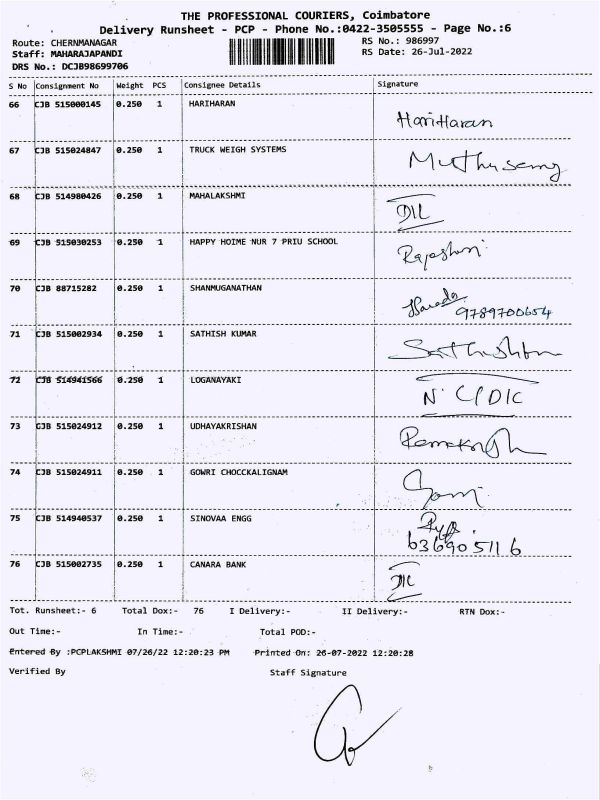 THE PROFESSIONAL COURIERS, Coimbatore
Delivery Runsheet - PCP - Phone No.:0422-3505555 - Page No.:6
Route: CHERNMANAGAR RS No.: 986997
Staff: MAHARAJAPANDI RS Date: 26-Jul-2022
DRS No.: DCJB98699706
S No Consignment No Weight PCS Consignee Details Signature
66 CJB 515000145 0.250 1 HARIHARAN HariHaran
67 CJB 515024847 0.250 1 TRUCK WEIGH SYSTEMS Muthusamy
68 CJB 514980426 0.250 1 MAHALAKSHMI D/L
69 CJB 515030253 0.250 1 HAPPY HOIME NUR 7 PRIU SCHOOL
70 CJB 88715282 0.250 1 SHANMUGANATHAN 9789700654
71 CJB 515002934 0.250 1 SATHISH KUMAR
72 CJB 514941566 0.250 1 LOGANAYAKI N.C/DIC
73 CJB 515024912 0.250 1 UDHAYAKRISHAN
74 CJB 515024911 0.250 1 GOWRI CHOCCKALIGNAM Gowri
75 CJB 514940537 0.250 1 SINOVAA ENGG 6369051116
76 CJB 515002735 0.250 1 CANARA BANK
Tot. Runsheet:- 6 Total Dox:- 76 I Delivery:- II Delivery:- RTN Dox:-
Out Time:- In Time:- Total POD:-
Entered By :PCPLAKSHMI 07/26/22 12:20:23 PM Printed On: 26-07-2022 12:20:28
Verified By Staff Signature